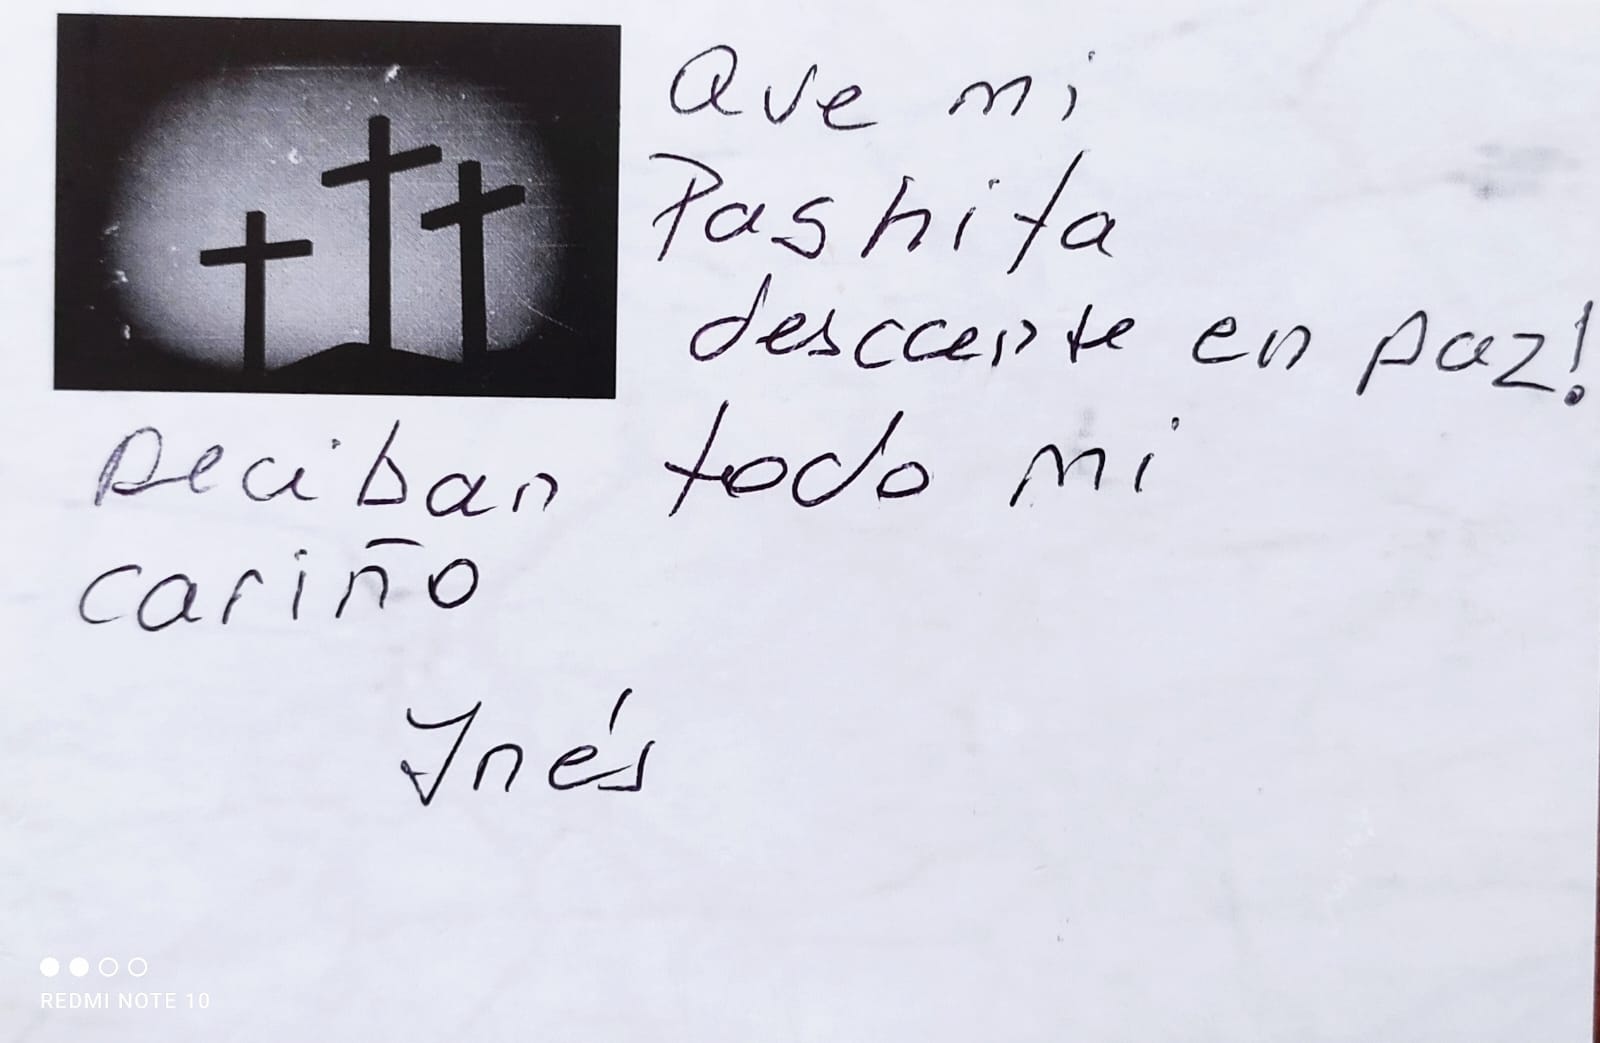 Que mi
Pashita
desccente en paz!
Reciban todo mi
cariño
Inés
REDMI NOTE 10